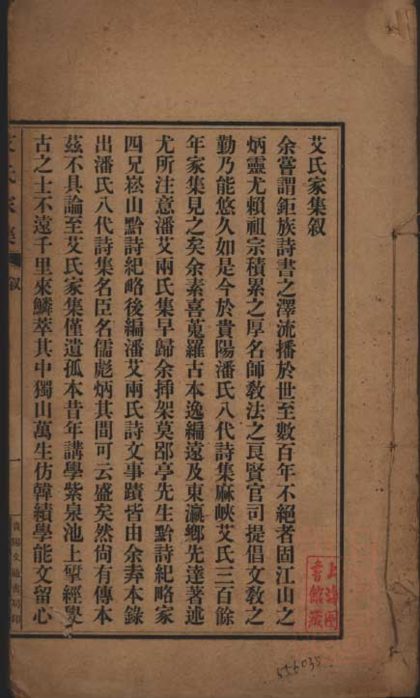 艾氏家集叙
余嘗謂鉅族詩書之澤流播於世至數百年不絕者固江山之
炳靈尤賴祖宗積累之厚名師教法之良賢官司提倡文教之
勤乃能悠久如是今於貴陽潘氏八代詩集麻峽艾氏三百餘
年家集見之矣余素喜蒐羅古本逸編遠及東瀛鄉先達著述
尤所注意潘艾兩氏集早歸余揷架莫郘亭先生黔詩紀略家
四兄崧山黔詩紀略後編潘艾兩氏詩文事蹟皆由余弆本錄
出潘氏八代詩集名臣名儒彪炳其間可云盛矣然尙有傳本
茲不具論至艾氏家集僅遺孤本昔年講學紫泉池上揅經學
古之士不遠千里來鱗萃其中獨山萬生仿韓績學能文留心
艾氏家集
叙
一
上海圖
書館藏
556035